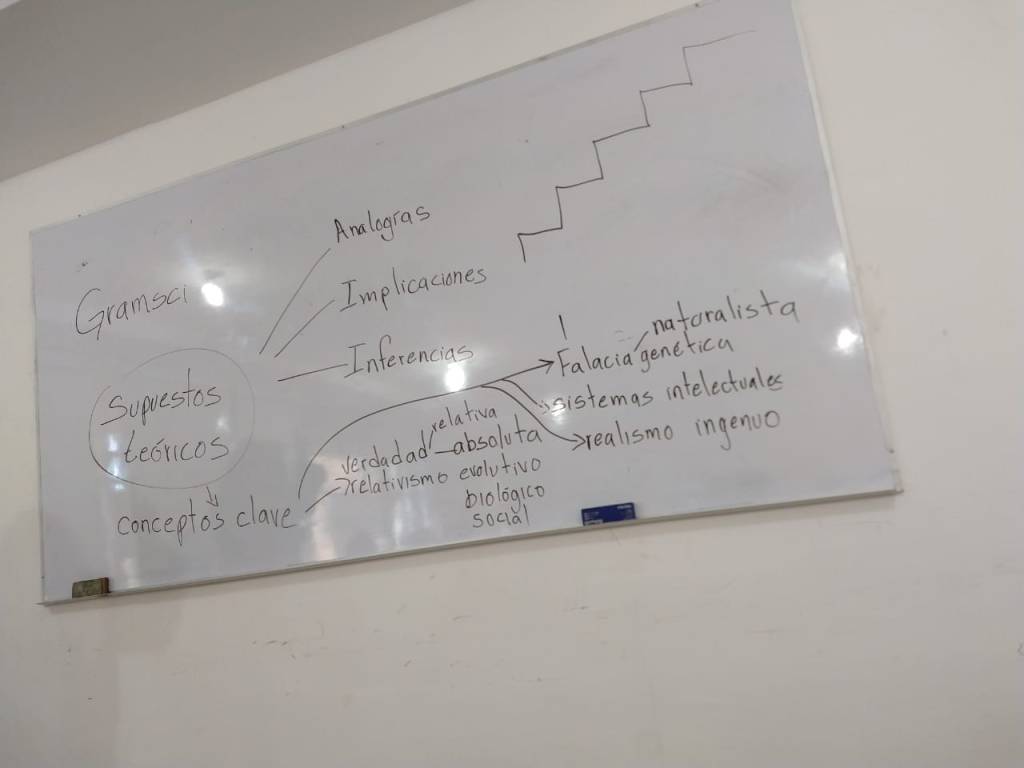 Analogras
Gramsci
Implicaciones
naturalista
Inferencias
Falacia genética
Supuestos
teóricos
sistemas intelectuales
relativa
verdadad absoluta
realismo ingenuo
relativismo evolutivo
biológico
social
conceptos clave